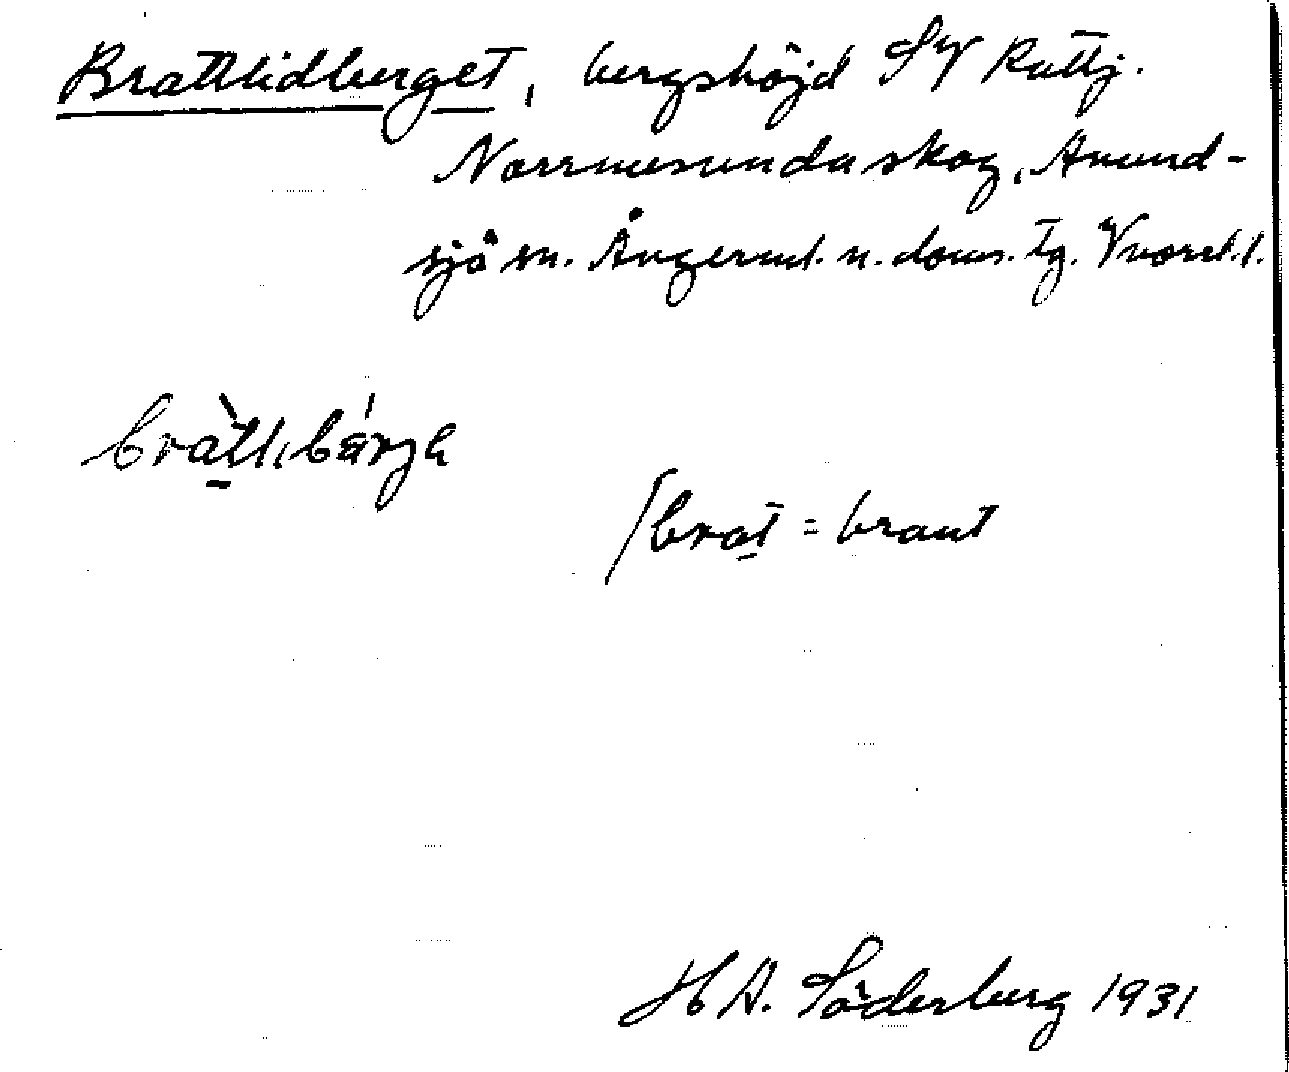 Brattlidberget, bergshöjd SV Rättj.
Norrmesunda skog, Anund-
sjö sn. Ångerml. n. doms. tg. V norrl. l.
bràtlibárga
/brat = brant
H A. Söderberg 1931